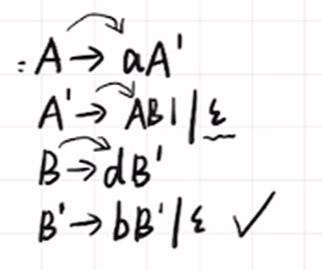 : A → aA'
A' → ABl | ε
B → dB'
B' → bB' | ε ✓